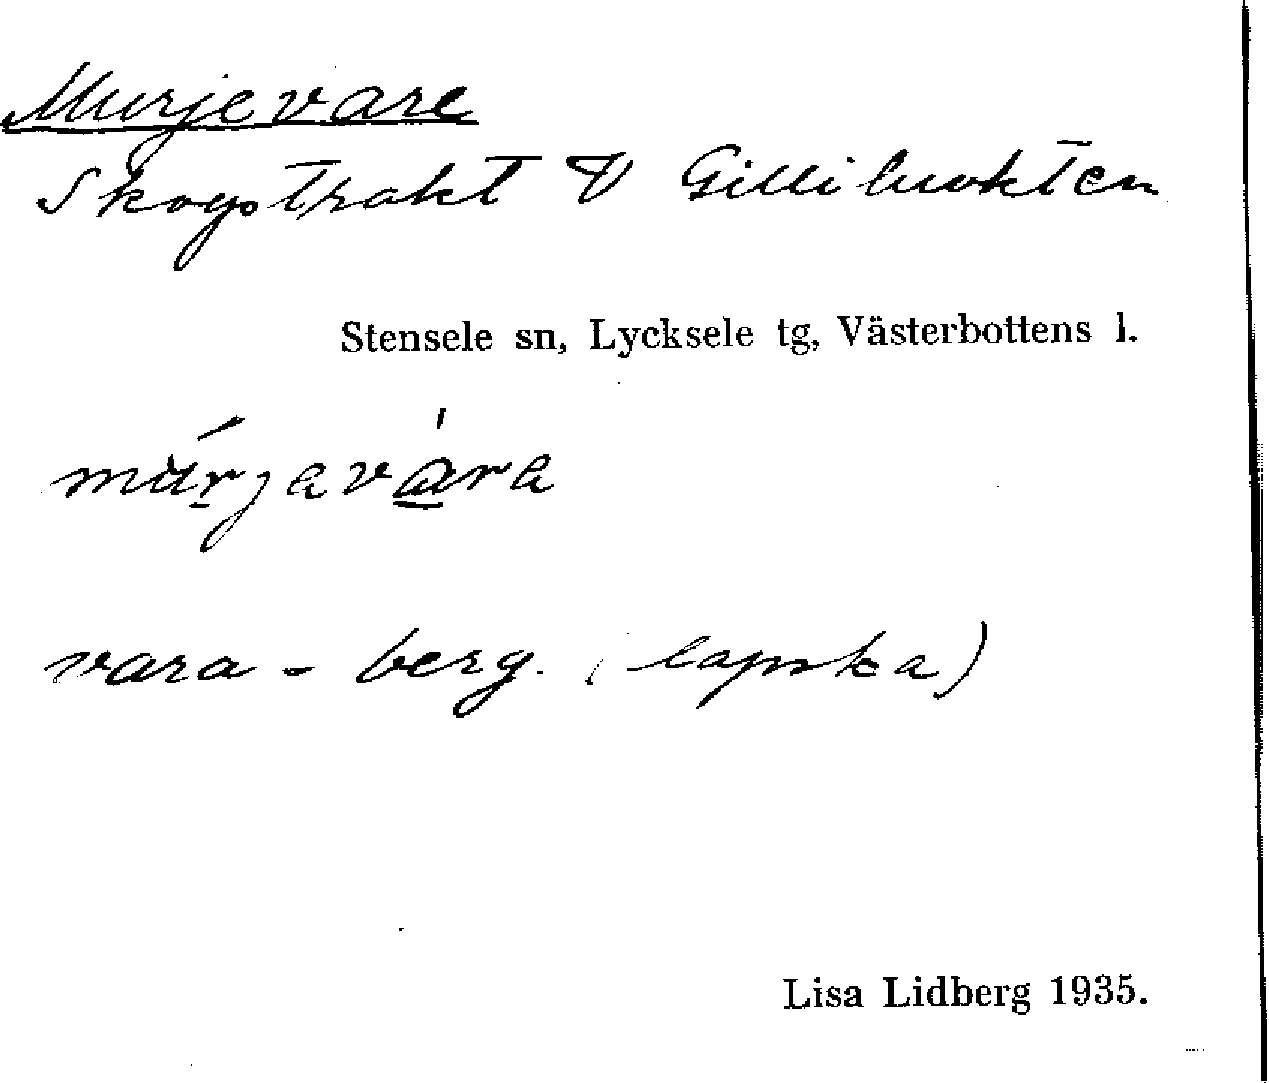 Murjevare
Skogstrakt V Gillibukten
Stensele sn, Lycksele tg, Västerbottens l.
múrjavára
vara - berg. (lapska)
Lisa Lidberg 1935.